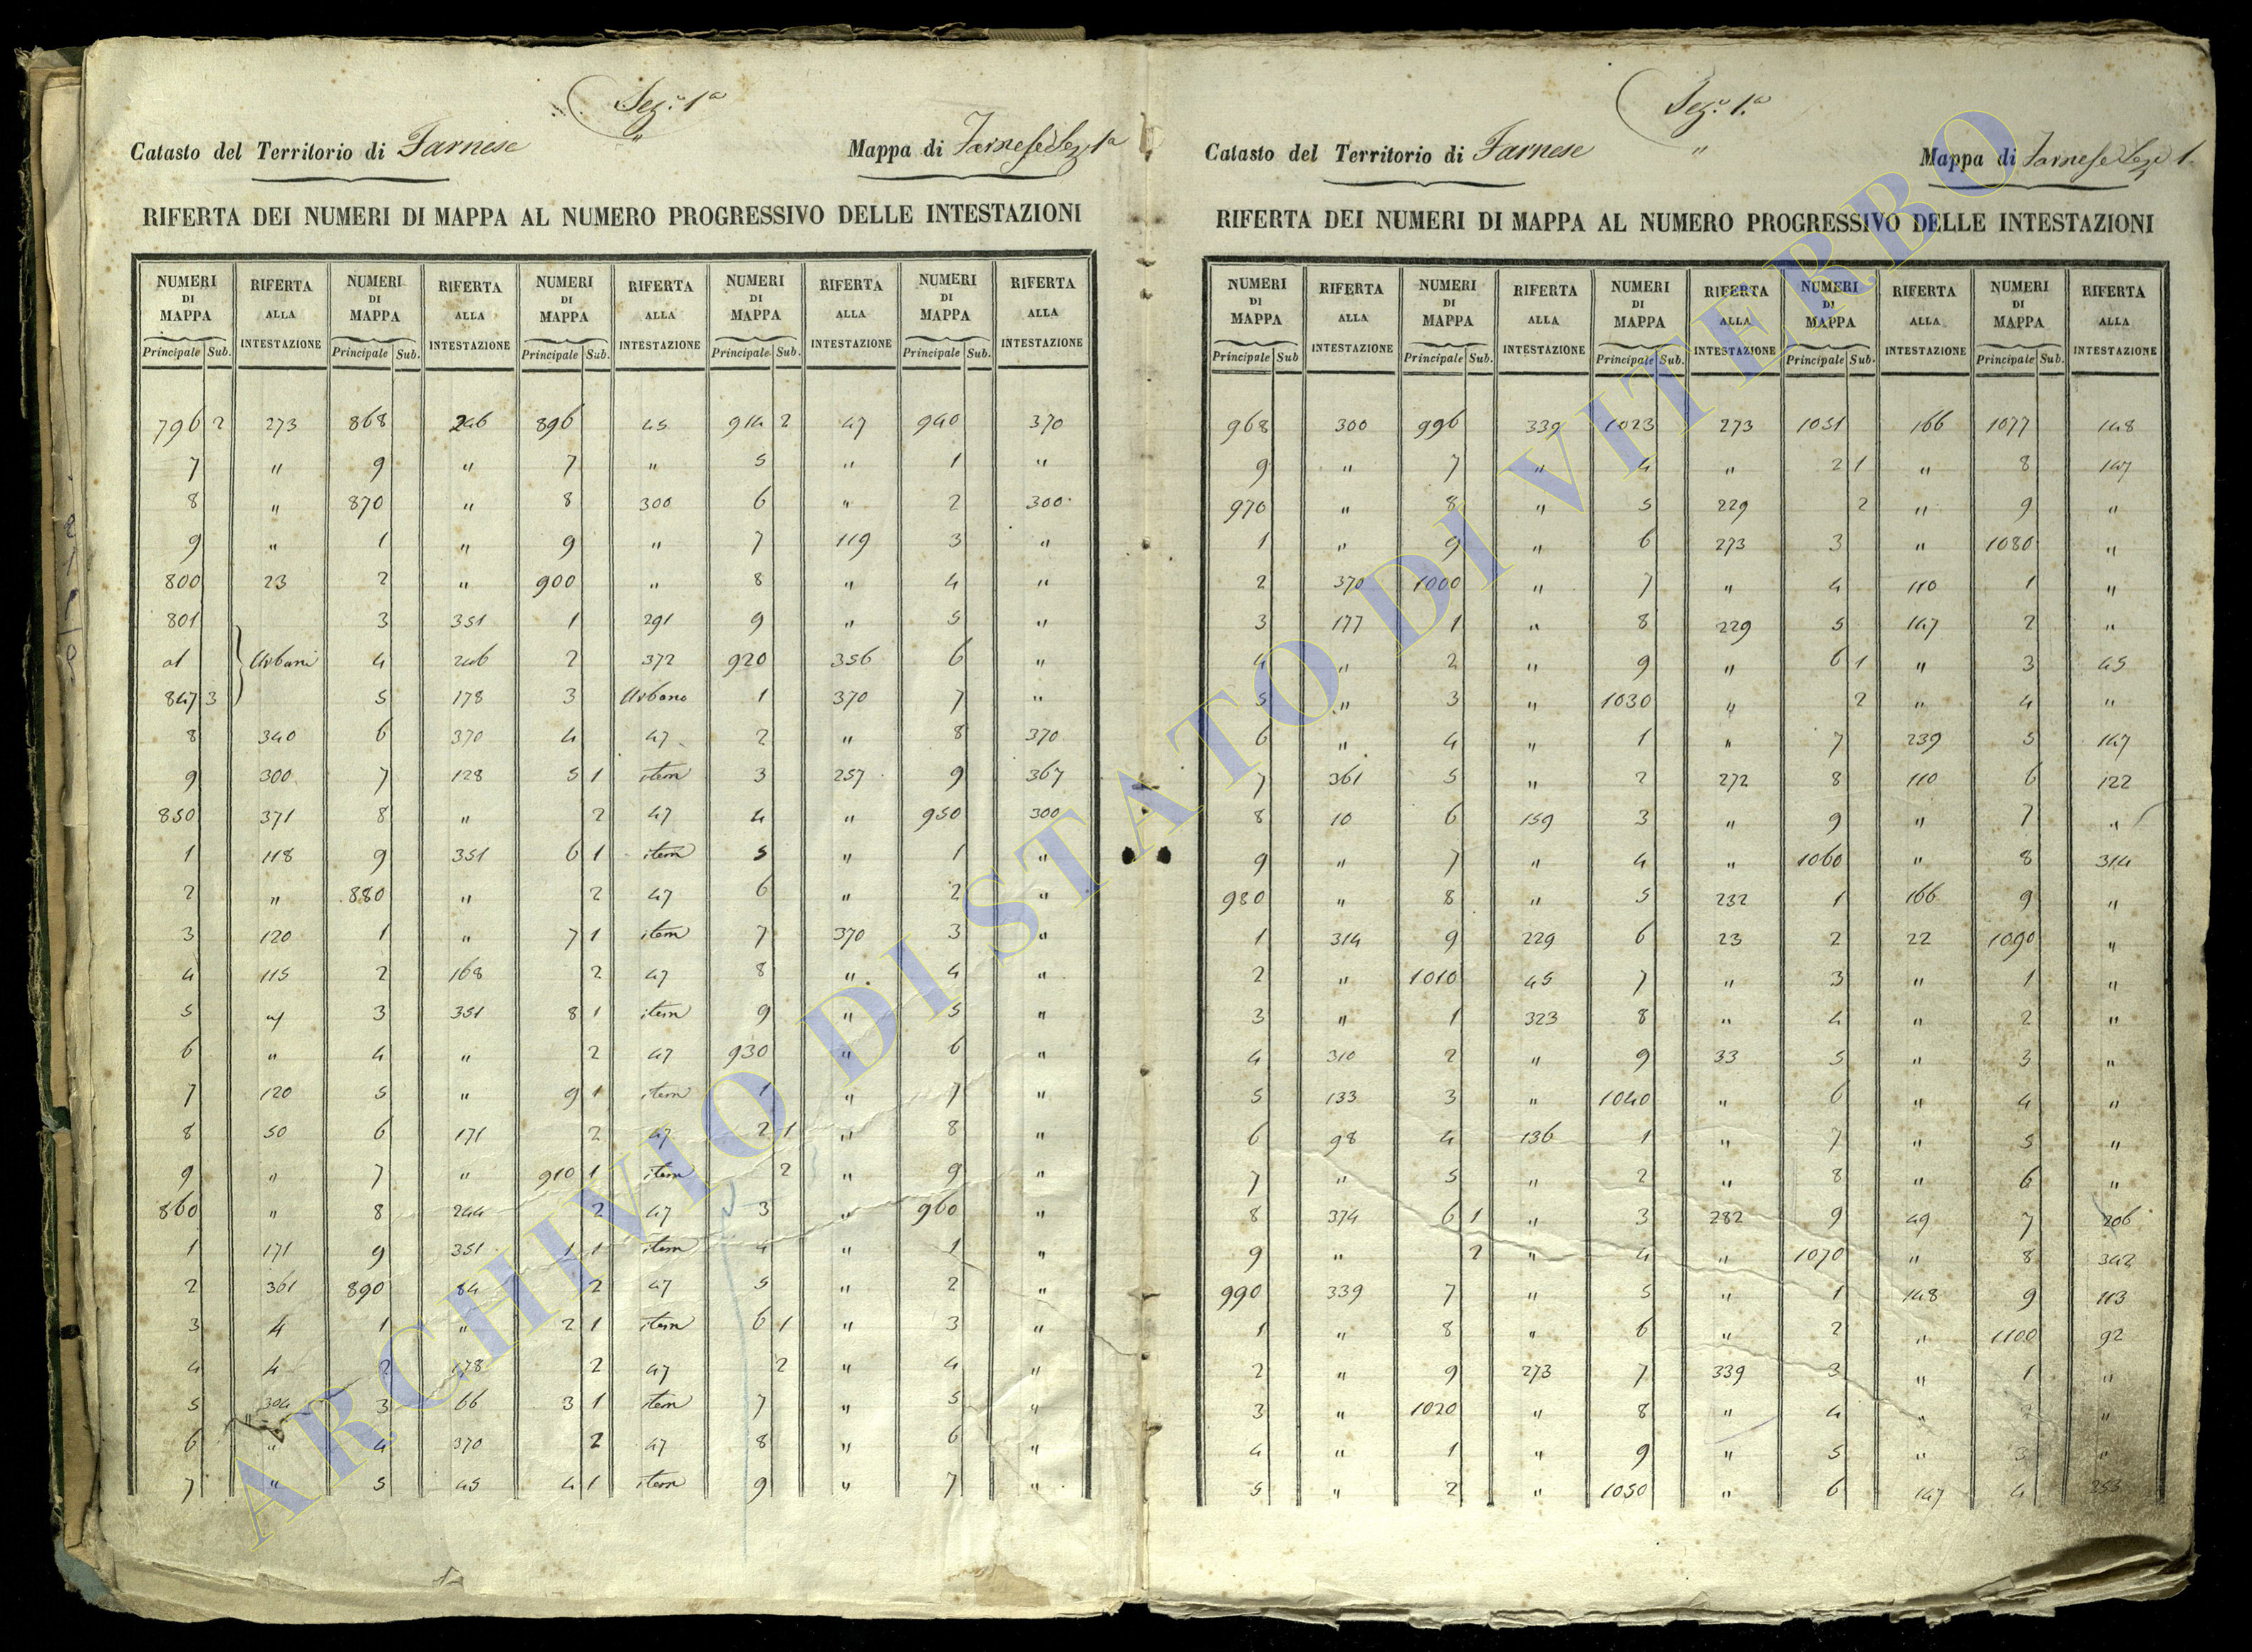 Sez.e 1a
Catasto del Territorio di Farnese
Mappa di Farnese Sez. 1a
RIFERTA DEI NUMERI DI MAPPA AL NUMERO PROGRESSIVO DELLE INTESTAZIONI
NUMERI DI MAPPA RIFERTA ALLA INTESTAZIONE NUMERI DI MAPPA RIFERTA ALLA INTESTAZIONE NUMERI DI MAPPA RIFERTA ALLA INTESTAZIONE NUMERI DI MAPPA RIFERTA ALLA INTESTAZIONE NUMERI DI MAPPA RIFERTA ALLA INTESTAZIONE
Principale Sub. Principale Sub. Principale Sub. Principale Sub. Principale Sub.
796 2 273 868 246 896 45 914 2 47 940 370
7 " 9 " 7 " 5 " 1 "
8 " 870 " 8 300 6 " 2 300
9 " 1 " 9 " 7 119 3 "
800 23 2 " 900 " 8 " 4 "
801 3 351 1 291 9 " 5 "
al Urbani 4 246 2 372 920 356 6 "
847 3 5 178 3 Urbano 1 370 7 "
8 340 6 370 4 47 2 " 8 370
9 300 7 128 5 1 item 3 257 9 367
850 371 8 " 2 47 4 " 950 300
1 118 9 351 6 1 item 5 " 1 "
2 " 880 " 2 47 6 " 2 "
3 120 1 " 7 1 item 7 370 3 "
4 115 2 168 2 47 8 " 4 "
5 3 351 8 1 item 9 " 5 "
6 " 4 " 2 47 930 " 6 "
7 120 5 " 9 1 item 1 " 7 "
8 50 6 171 2 47 2 1 " 8 "
9 " 7 " 910 1 item 2 " 9 "
860 " 8 244 2 47 3 " 960 "
1 171 9 351 1 1 item 4 " 1 "
2 361 890 84 2 47 5 " 2 "
3 4 1 " 2 1 item 6 1 " 3 "
4 4 2 178 2 47 2 " 4 "
5 304 3 66 3 1 item 7 " 5 "
6 " 4 370 2 47 8 " 6 "
7 " 5 45 4 1 item 9 " 7 "
Sez.e 1.a
Catasto del Territorio di Farnese
Mappa di Farnese Sez. 1
RIFERTA DEI NUMERI DI MAPPA AL NUMERO PROGRESSIVO DELLE INTESTAZIONI
NUMERI DI MAPPA RIFERTA ALLA INTESTAZIONE NUMERI DI MAPPA RIFERTA ALLA INTESTAZIONE NUMERI DI MAPPA RIFERTA ALLA INTESTAZIONE NUMERI DI MAPPA RIFERTA ALLA INTESTAZIONE NUMERI DI MAPPA RIFERTA ALLA INTESTAZIONE
Principale Sub Principale Sub. Principale Sub. Principale Sub. Principale Sub.
968 300 996 339 1023 273 1051 166 1077 148
9 " 7 " 4 " 2 1 " 8 147
970 " 8 " 5 229 2 " 9 "
1 " 9 " 6 273 3 " 1080 "
2 370 1000 " 7 " 4 110 1 "
3 177 1 " 8 229 5 147 2 "
4 " 2 " 9 " 6 1 " 3 45
5 " 3 " 1030 " 2 " 4 "
6 " 4 " 1 " 7 239 5 147
7 361 5 " 2 272 8 110 6 122
8 10 6 159 3 " 9 " 7 "
9 " 7 " 4 " 1060 " 8 314
980 " 8 " 5 232 1 166 9 "
1 314 9 229 6 23 2 22 1090 "
2 " 1010 45 7 " 3 " 1 "
3 " 1 323 8 " 4 " 2 "
4 310 2 " 9 33 5 " 3 "
5 133 3 " 1040 " 6 " 4 "
6 98 4 136 1 " 7 " 5 "
7 " 5 " 2 " 8 " 6 "
8 374 6 1 " 3 282 9 49 7 206
9 " 2 " 4 " 1070 " 8 342
990 339 7 " 5 " 1 148 9 113
1 " 8 " 6 " 2 " 1100 92
2 " 9 273 7 339 3 " 1 "
3 " 1020 " 8 " 4 " 2 "
4 " 1 " 9 " 5 " 3 "
5 " 2 " 1050 " 6 147 4 253
ARCHIVIO DI STATO DI VITERBO